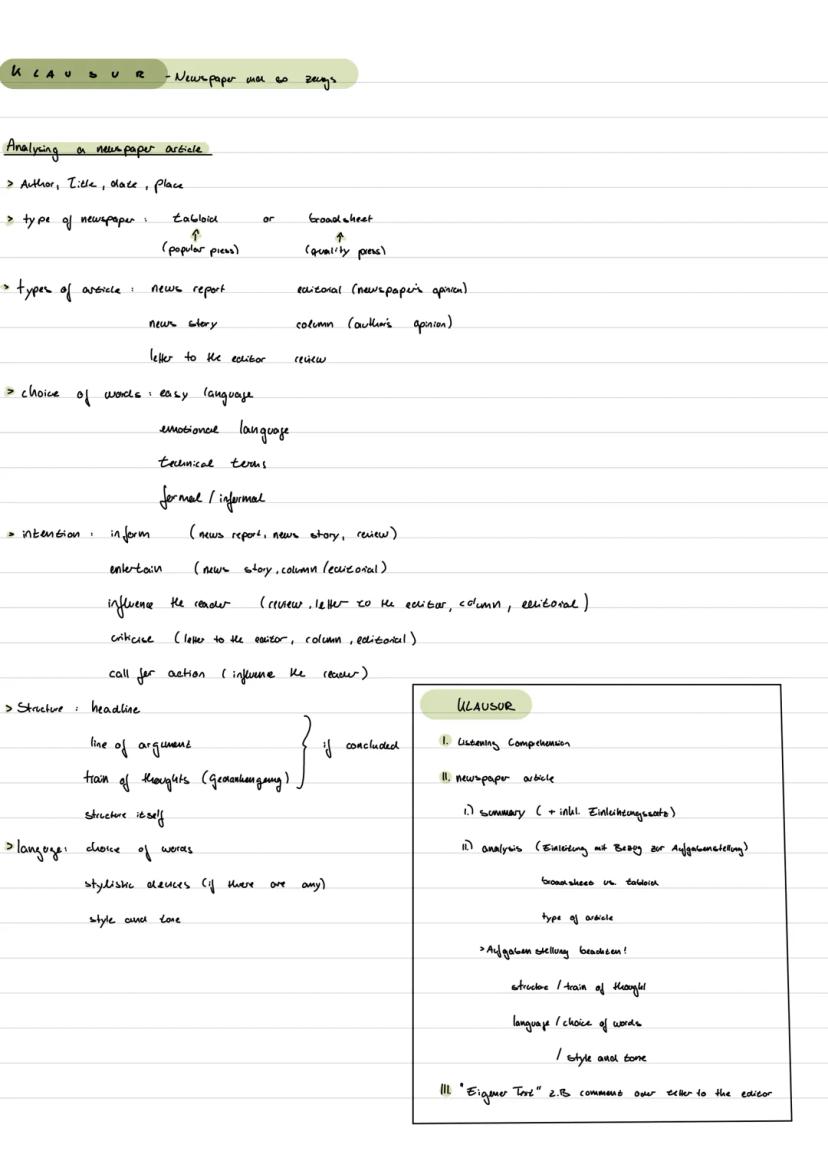 KLAUSUR - Newspaper und so zeugs
Analysing a newspaper article
> Author, Title, date, place
> type of newspaper: tabloid or broadsheet
↑ ↑
(popular press) (quality press)
> types of article: news report editorial (newspaper's opinion)
news story column (author's opinion)
letter to the editor review
> choice of words: easy language
emotional language
technical terms
formal / informal
> intention: inform (news report, news story, review)
entertain (news story, column/editorial)
influence the reader (review, letter to the editor, column, editorial)
criticise (letter to the editor, column, editorial)
call for action (influence the reader)
> Structure: headline
line of argument } if concluded
train of thoughts (Gedankengang)
structure itself
> language: choice of words
stylistic devices (if there are any)
style and tone
KLAUSUR
I. Listening Comprehension
II. newspaper article
I.) summary (+ inkl. Einleitungssatz)
II.) analysis (Einleitung mit Bezug zur Aufgabenstellung)
broadsheet vs. tabloid
type of article
> Aufgabenstellung beachten!
structure / train of thought
language / choice of words
/ style and tone
III. "Eigener Text" z.B comment oder letter to the editor